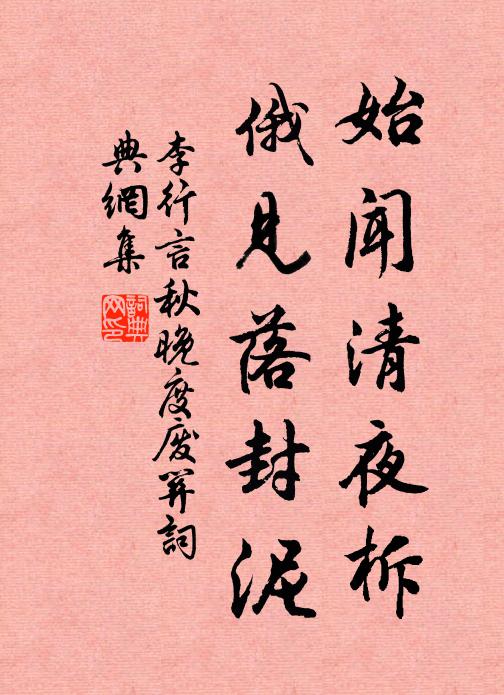 始闻清夜柝
俄见落封泥
李行言秋晚度废关詞
典網集
詞典网印